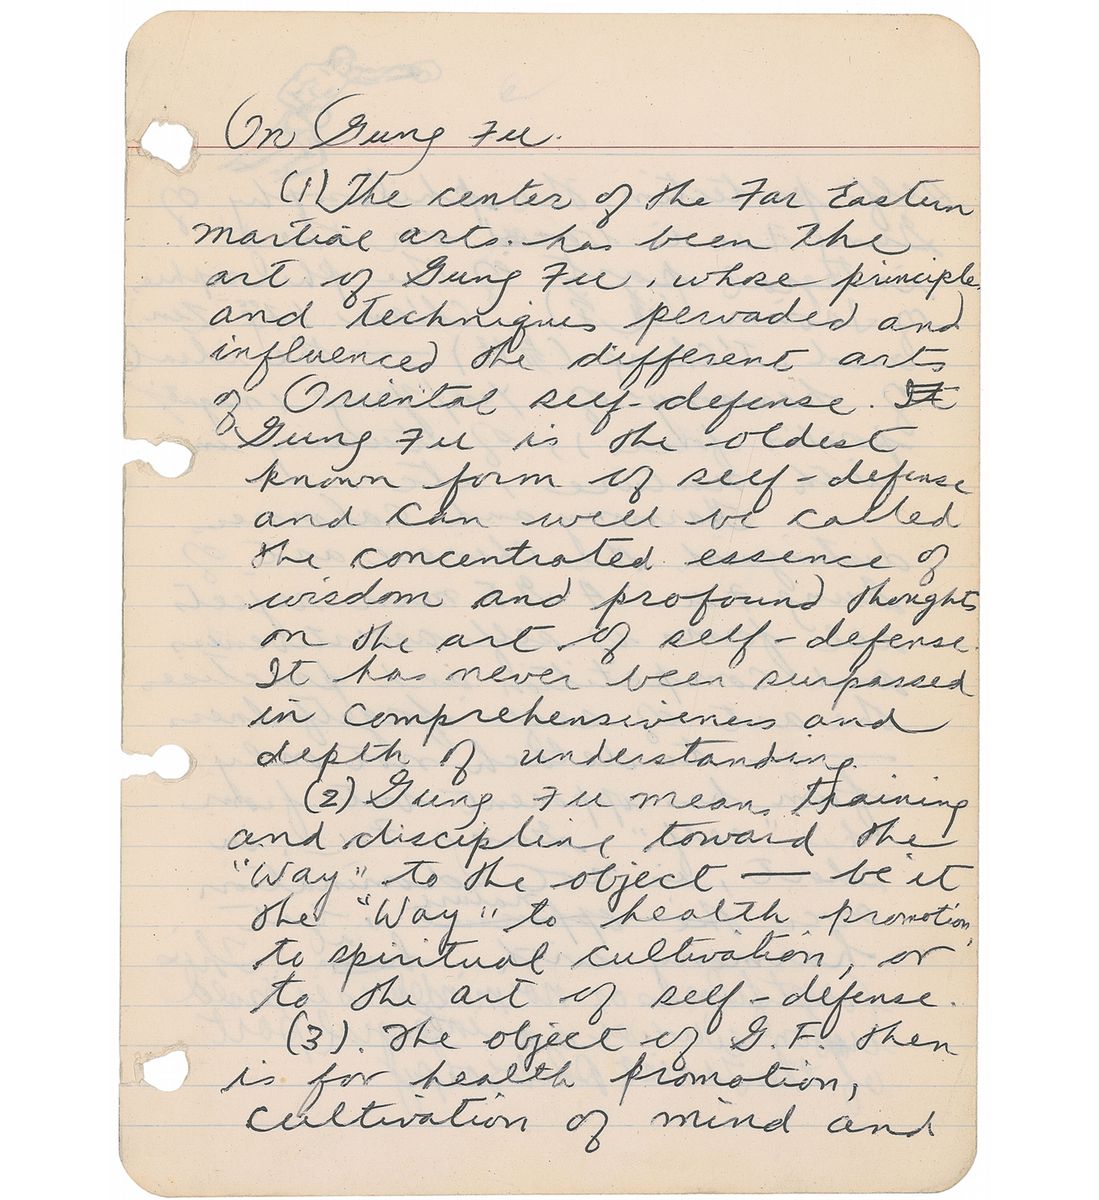 On Gung Fu.
(1) The center of the Far Eastern
martial arts. has been the
art of Gung Fu, whose principles
and techniques pervaded and
influenced the different arts
of Oriental self-defense. It
Gung Fu is the oldest
known form of self-defense
and can well be called
the concentrated essence of
wisdom and profound thoughts
on the art of self-defense.
It has never been surpassed
in comprehensiveness and
depth of understanding.
(2) Gung Fu means training
and discipline toward the
"Way" to the object — be it
the "Way" to health promotion,
to spiritual cultivation, or
to the art of self-defense.
(3). The object of G. F. then
is for health promotion,
cultivation of mind and